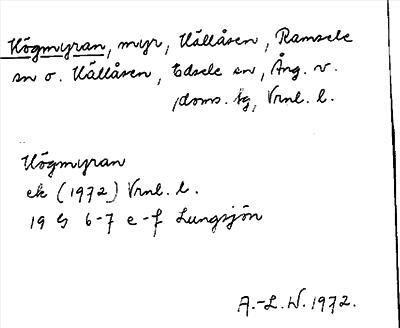 Högmyran, myr, Källåsen, Ramsele
sn o. Källåsen, Edsele sn, Ång. v.
doms. tg, Vrnl. l.
Högmyran
ek (1972) Vrnl. l.
19 G 6-7 e-f Lungsjön
A.-L. W. 1972.